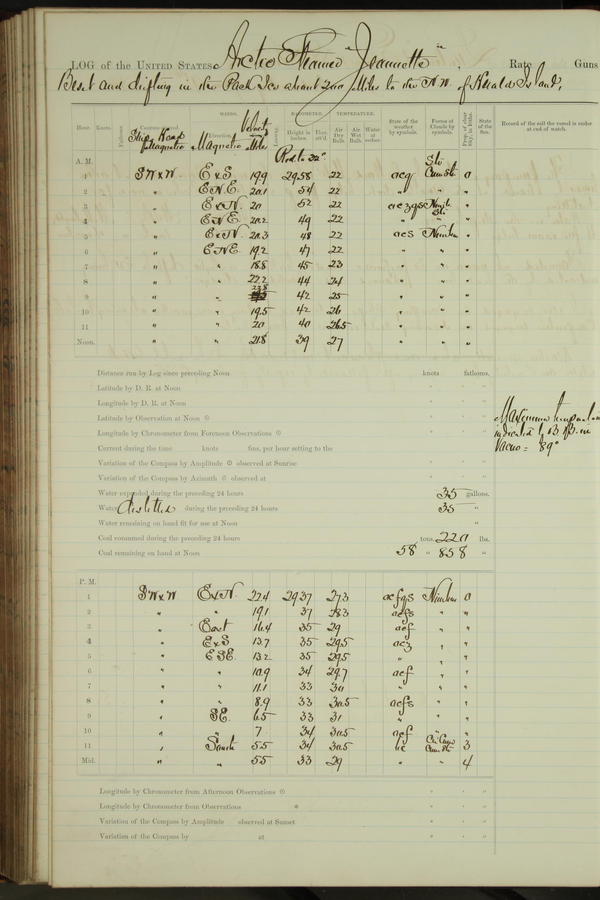 LOG of the UNITED STATES Arctic Steamer "Jeannette" Rate Guns
Beset and drifting in the Pack Ice about 200 Miles to the N.W. of Herald Island.
WINDS. BAROMETER. TEMPERATURE.
Hour. Knots. Fathoms. Ship's Head Magnetic Direction. Magnetic Velocity Miles Leeway. Height in inches. Ther. att'd. Air Dry Bulb. Air Wet Bulb. Water at surface. State of the weather by symbols. Forms of Clouds by symbols. Prop. of clear Sky, in 10ths. State of the Sea. Record of the sail the vessel is under at end of watch.
Red to 32°
A. M.
1 SWxW ExS. 19.9 29.58 22 Cum St. 0
2 " E.N.E. 20.1 54 22 " " "
3 " ExN. 20 52 22 "
4 " E.N.E. 20.2 49 22 " " "
5 " ExN. 20.3 48 22 "
6 " E.N.E. 19.2 47 22 " " "
7 " " 18.8 45 23 " " "
8 " " 22.2 44 24 " " "
9 " " 23.8 42 25 " " "
10 " " 19.5 42 26 " " "
11 " " 20 40 26.5 " " "
Noon. " " 21.8 39 27 " " "
Distance run by Log since preceding Noon knots fathoms.
Latitude by D. R. at Noon
Longitude by D. R. at Noon
Latitude by Observation at Noon
Longitude by Chronometer from Forenoon Observations
Current during the time knots fms. per hour setting to the
Variation of the Compass by Amplitude observed at Sunrise
Variation of the Compass by Azimuth observed at
Water expended during the preceding 24 hours 35 gallons.
Water distilled during the preceding 24 hours 35 "
Water remaining on hand fit for use at Noon "
Coal consumed during the preceding 24 hours tons, 220 lbs.
Coal remaining on hand at Noon 58 " 858 "
Maximum temperature
indicated by B. B. in
Vacuo = 89°
P. M.
1 SWxW ExN. 22.4 29.37 27.3 0
2 " " 19.1 37 28.3 " "
3 " East 16.4 35 29 " "
4 " ExS 13.7 35 29.5 " "
5 " ESE. 13.2 35 29.5 " " "
6 " " 10.9 34 29.7 " "
7 " " 11.1 33 30 " " "
8 " " 8.9 33 30.5 " "
9 " SE. 6.5 33 31 " " "
10 " " 7 34 30.5 " "
11 " South 5.5 34 30.5 Cum St. 3
Mid. " " 5.5 33 29 " " 4
Longitude by Chronometer from Afternoon Observations
Longitude by Chronometer from Observations
Variation of the Compass by Amplitude observed at Sunset
Variation of the Compass by at